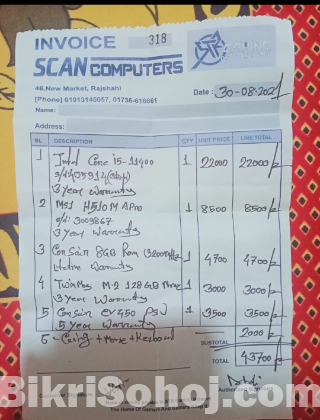 INVOICE 318
SCAN COMPUTERS
46, New Market, Rajshahi
[Phone] 01913145667, 01736-616661
Date : 30-08-2021
Name:
Address:
SL DESCRIPTION QTY UNIT PRICE LINE TOTAL
1 Intel Core i5-11400 1 22000 22000/=
3 Year Warranty
2 MSI H510M A Pro 1 8500 8500/=
S/N: 3009867
3 Year Warranty
3 Corsair 8GB Ram 3200MHz 1 4700 4700/=
Warranty
4 M.2 128GB 1 3000 3000/=
3 Year Warranty
5 Corsair CV450 PSU 1 3500 3500/=
5 Year Warranty
6 Casing + Mouse + Keyboard 2000/=
SUBTOTAL
TOTAL 43700/=
BikriSohoj.com